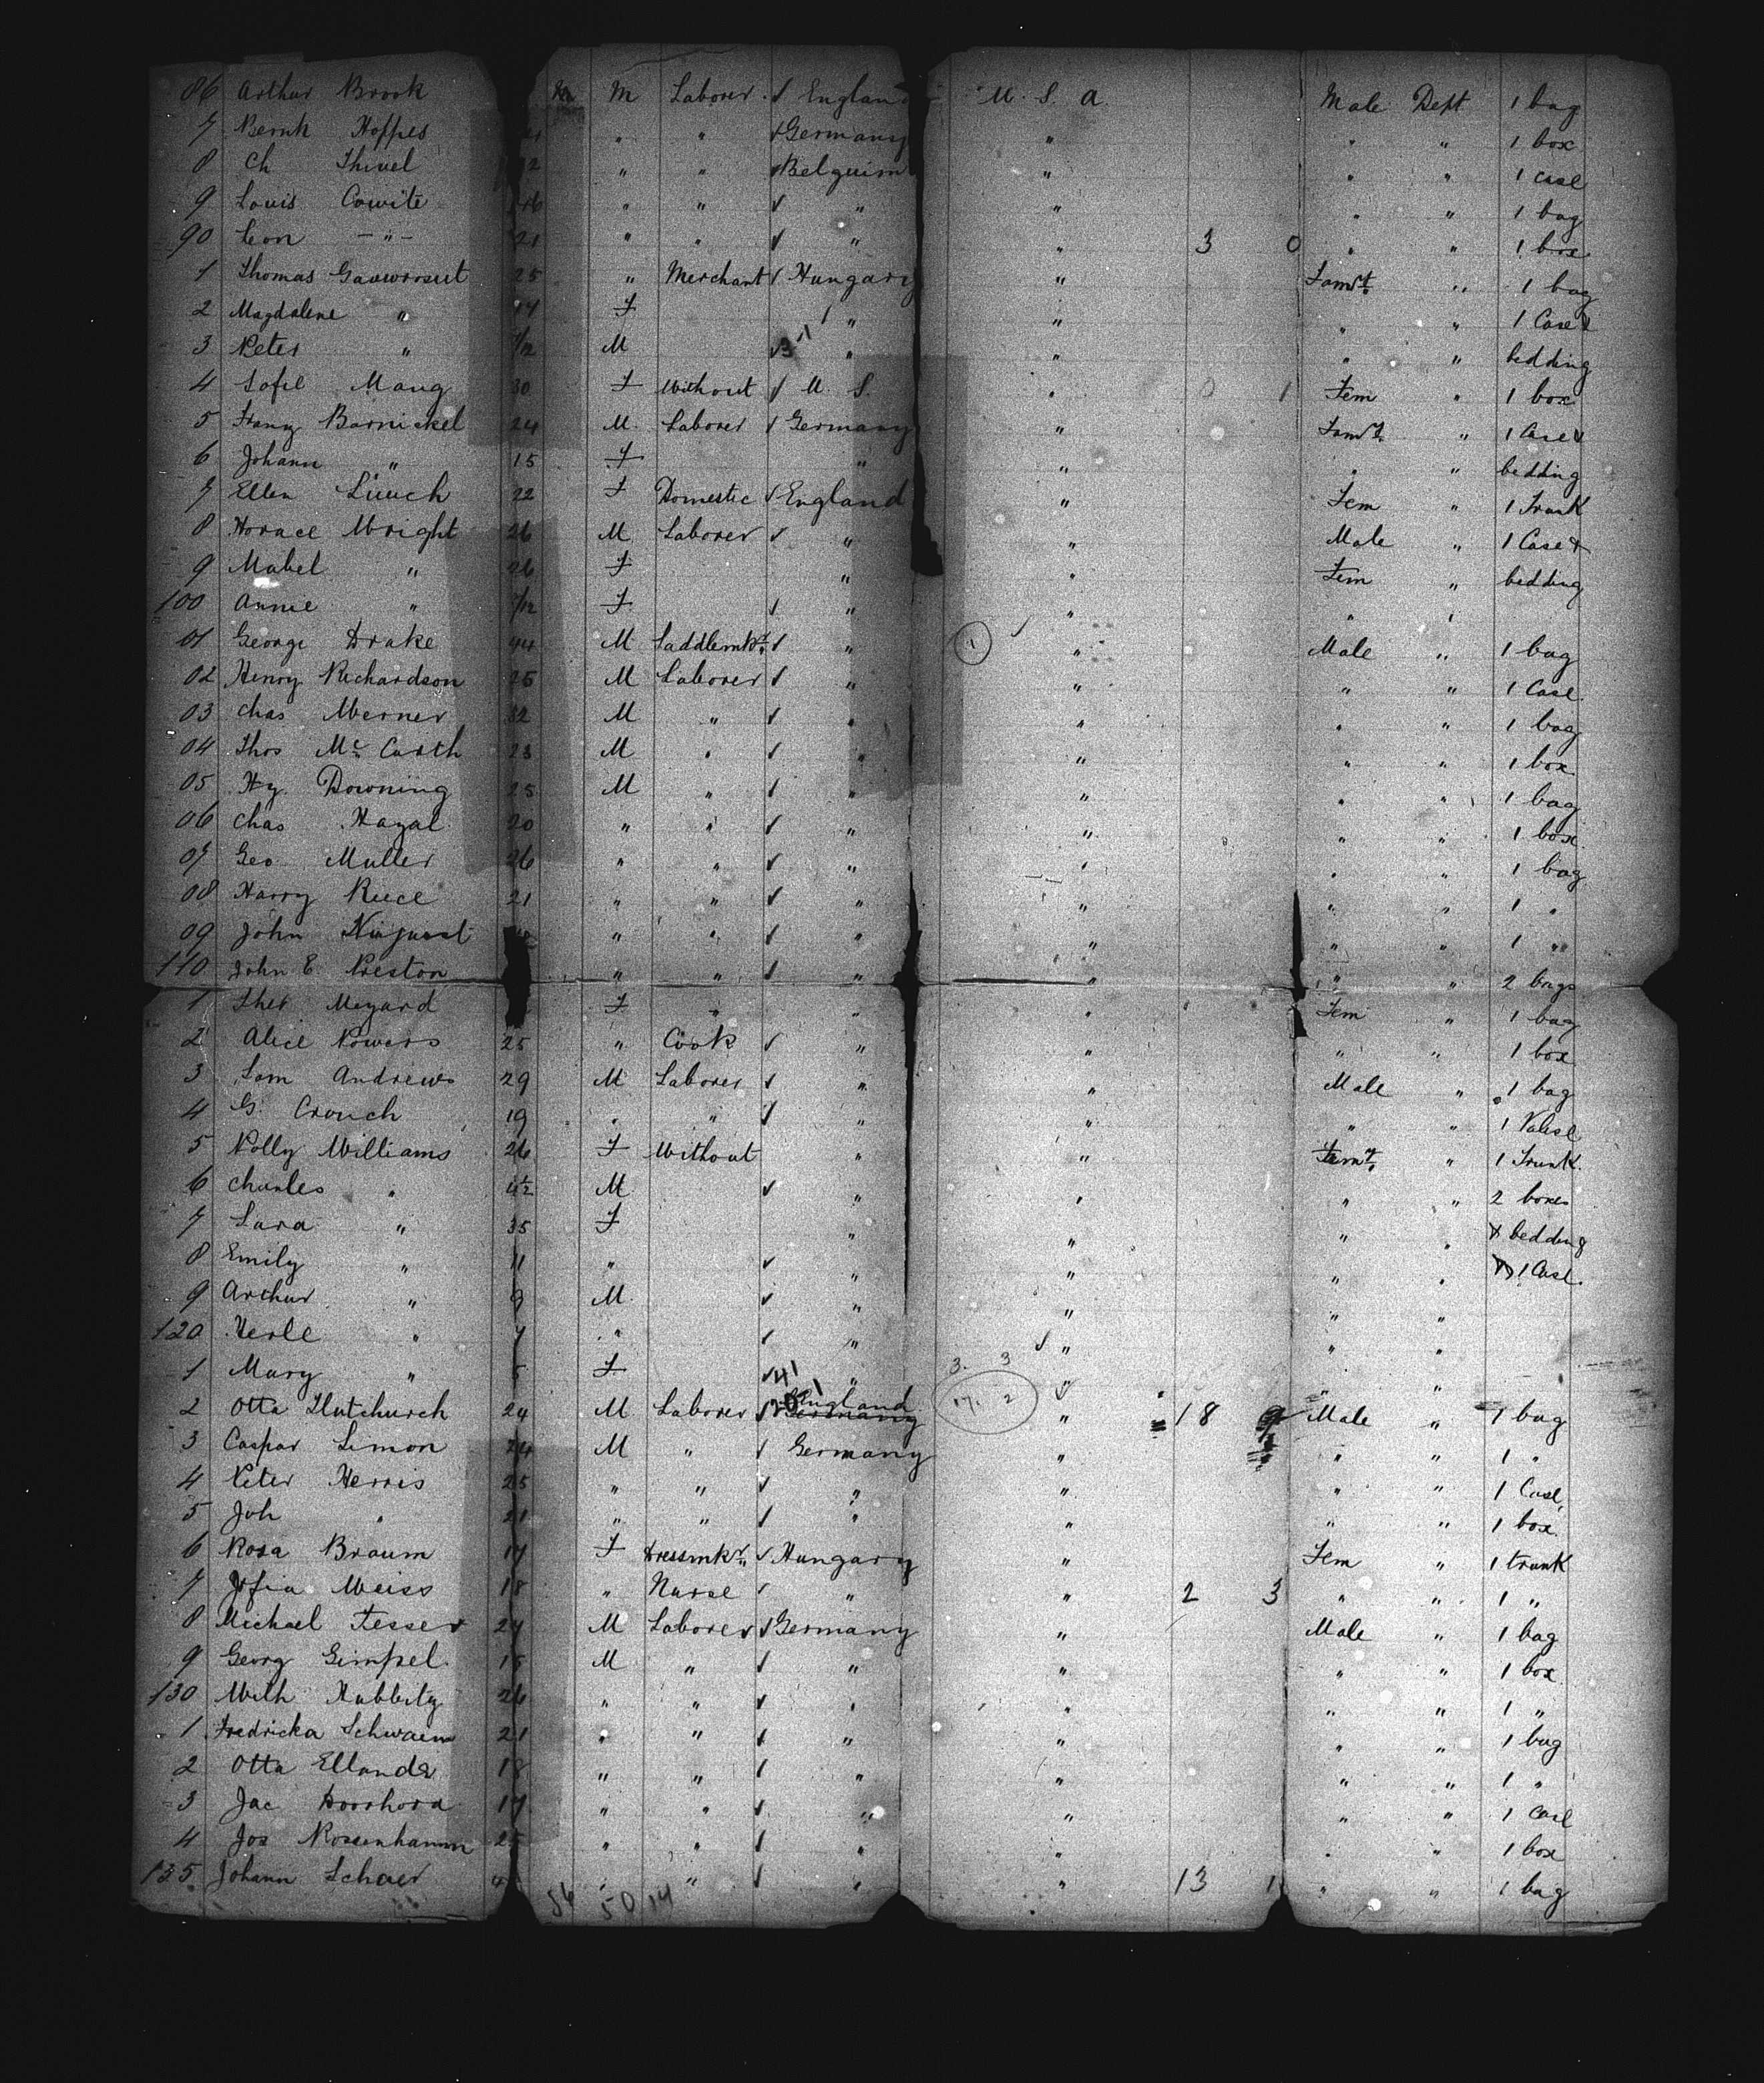 86 Arthur Brook M Laborer England U. S. A. Male Dept 1 bag
7 Bernh Hoppes " " Germany " " " 1 box
8 Ch Thivel " " Belguim " " " 1 case
9 Louis Cowite 16 " " " " " " 1 bag
90 Leon -"- 21 " " " " 3 0 " " 1 box
1 Thomas 25 " Merchant Hungary " Famt. " 1 bag
2 Magdalene " F " " " " 1 Case &
3 Peter " M 3 " " " " bedding
4 Sofie Mang 30 F Without U. S. " 0 1 Fem " 1 box
5 Franz Barnickel 24 M Laborer Germany " Famt. " 1 Case &
6 Johann " 15 F " " " " bedding
7 Ellen 22 F Domestic England " Fem " 1 Trunk
8 Horace Wright 26 M Laborer " " Male " 1 Case &
9 Mabel " 26 F " " Fem " bedding
100 Annie " F " " " "
01 George Drake 44 M Saddlemkr. " 1 " Male " 1 bag
02 Henry Richardson 25 M Laborer " " " " 1 Case
03 Chas Werner 32 M " " " " " 1 bag
04 Thos Mc Carth 23 M " " " " " 1 box
05 Hy. Downing 25 M " " " " " 1 bag
06 Chas Hazal 20 " " " " " " 1 box
07 Geo Muller 26 " " " " " " 1 bag
08 Harry Reece 21 " " " " " " 1 "
09 John " " " " " " 1 "
110 John E Preston " " " " " " 2 bags
1 Ther Megard F " " " Fem " 1 bag
2 Alice Powers 25 " Cook " " " " 1 box
3 Sam Andrews 29 M Laborer " " Male " 1 bag
4 G. Crouch 19 " " " " " " 1 Valise
5 Polly Williams 26 F Without " " Famt. " 1 Trunk
6 Charles " 4½ M " " " " 2 boxes
7 Sara " 35 F " " " " & bedding
8 Emily " 11 " " " " " 1 Case
9 Arthur " 9 M " " " "
120 Verle " 7 " " " " "
1 Mary " 5 F 41 " 3. 3 " " "
2 Otta Hutchurch 24 M Laborer 20 England Germany 17. 2 " 18 9 Male " 1 bag
3 Caspar Simon 24 M " Germany " " " 1 "
4 Peter Herris 25 " " " " " " 1 Case
5 Joh " 21 " " " " " " 1 box
6 Rosa Braum 17 F Dressmkr. Hungary " Fem " 1 trunk
7 Weiss 18 " Nurse " " 2 3 " " 1 "
8 Michael Fesser 24 M Laborer Germany " Male " 1 bag
9 Georg Gimpel 18 M " " " " " 1 box
130 Wilh 26 " " " " " " 1 "
1 Fredricka Schwaem 21 " " " " " " 1 bag
2 Otta Ellande 18 " " " " " " 1 "
3 Jac Doorhora 17 " " " " " " 1 case
4 Jos Rossenhamm 25 " " " " " " 1 box
135 Johann Schaer " " " " 13 1 " " 1 bag
56 50 14